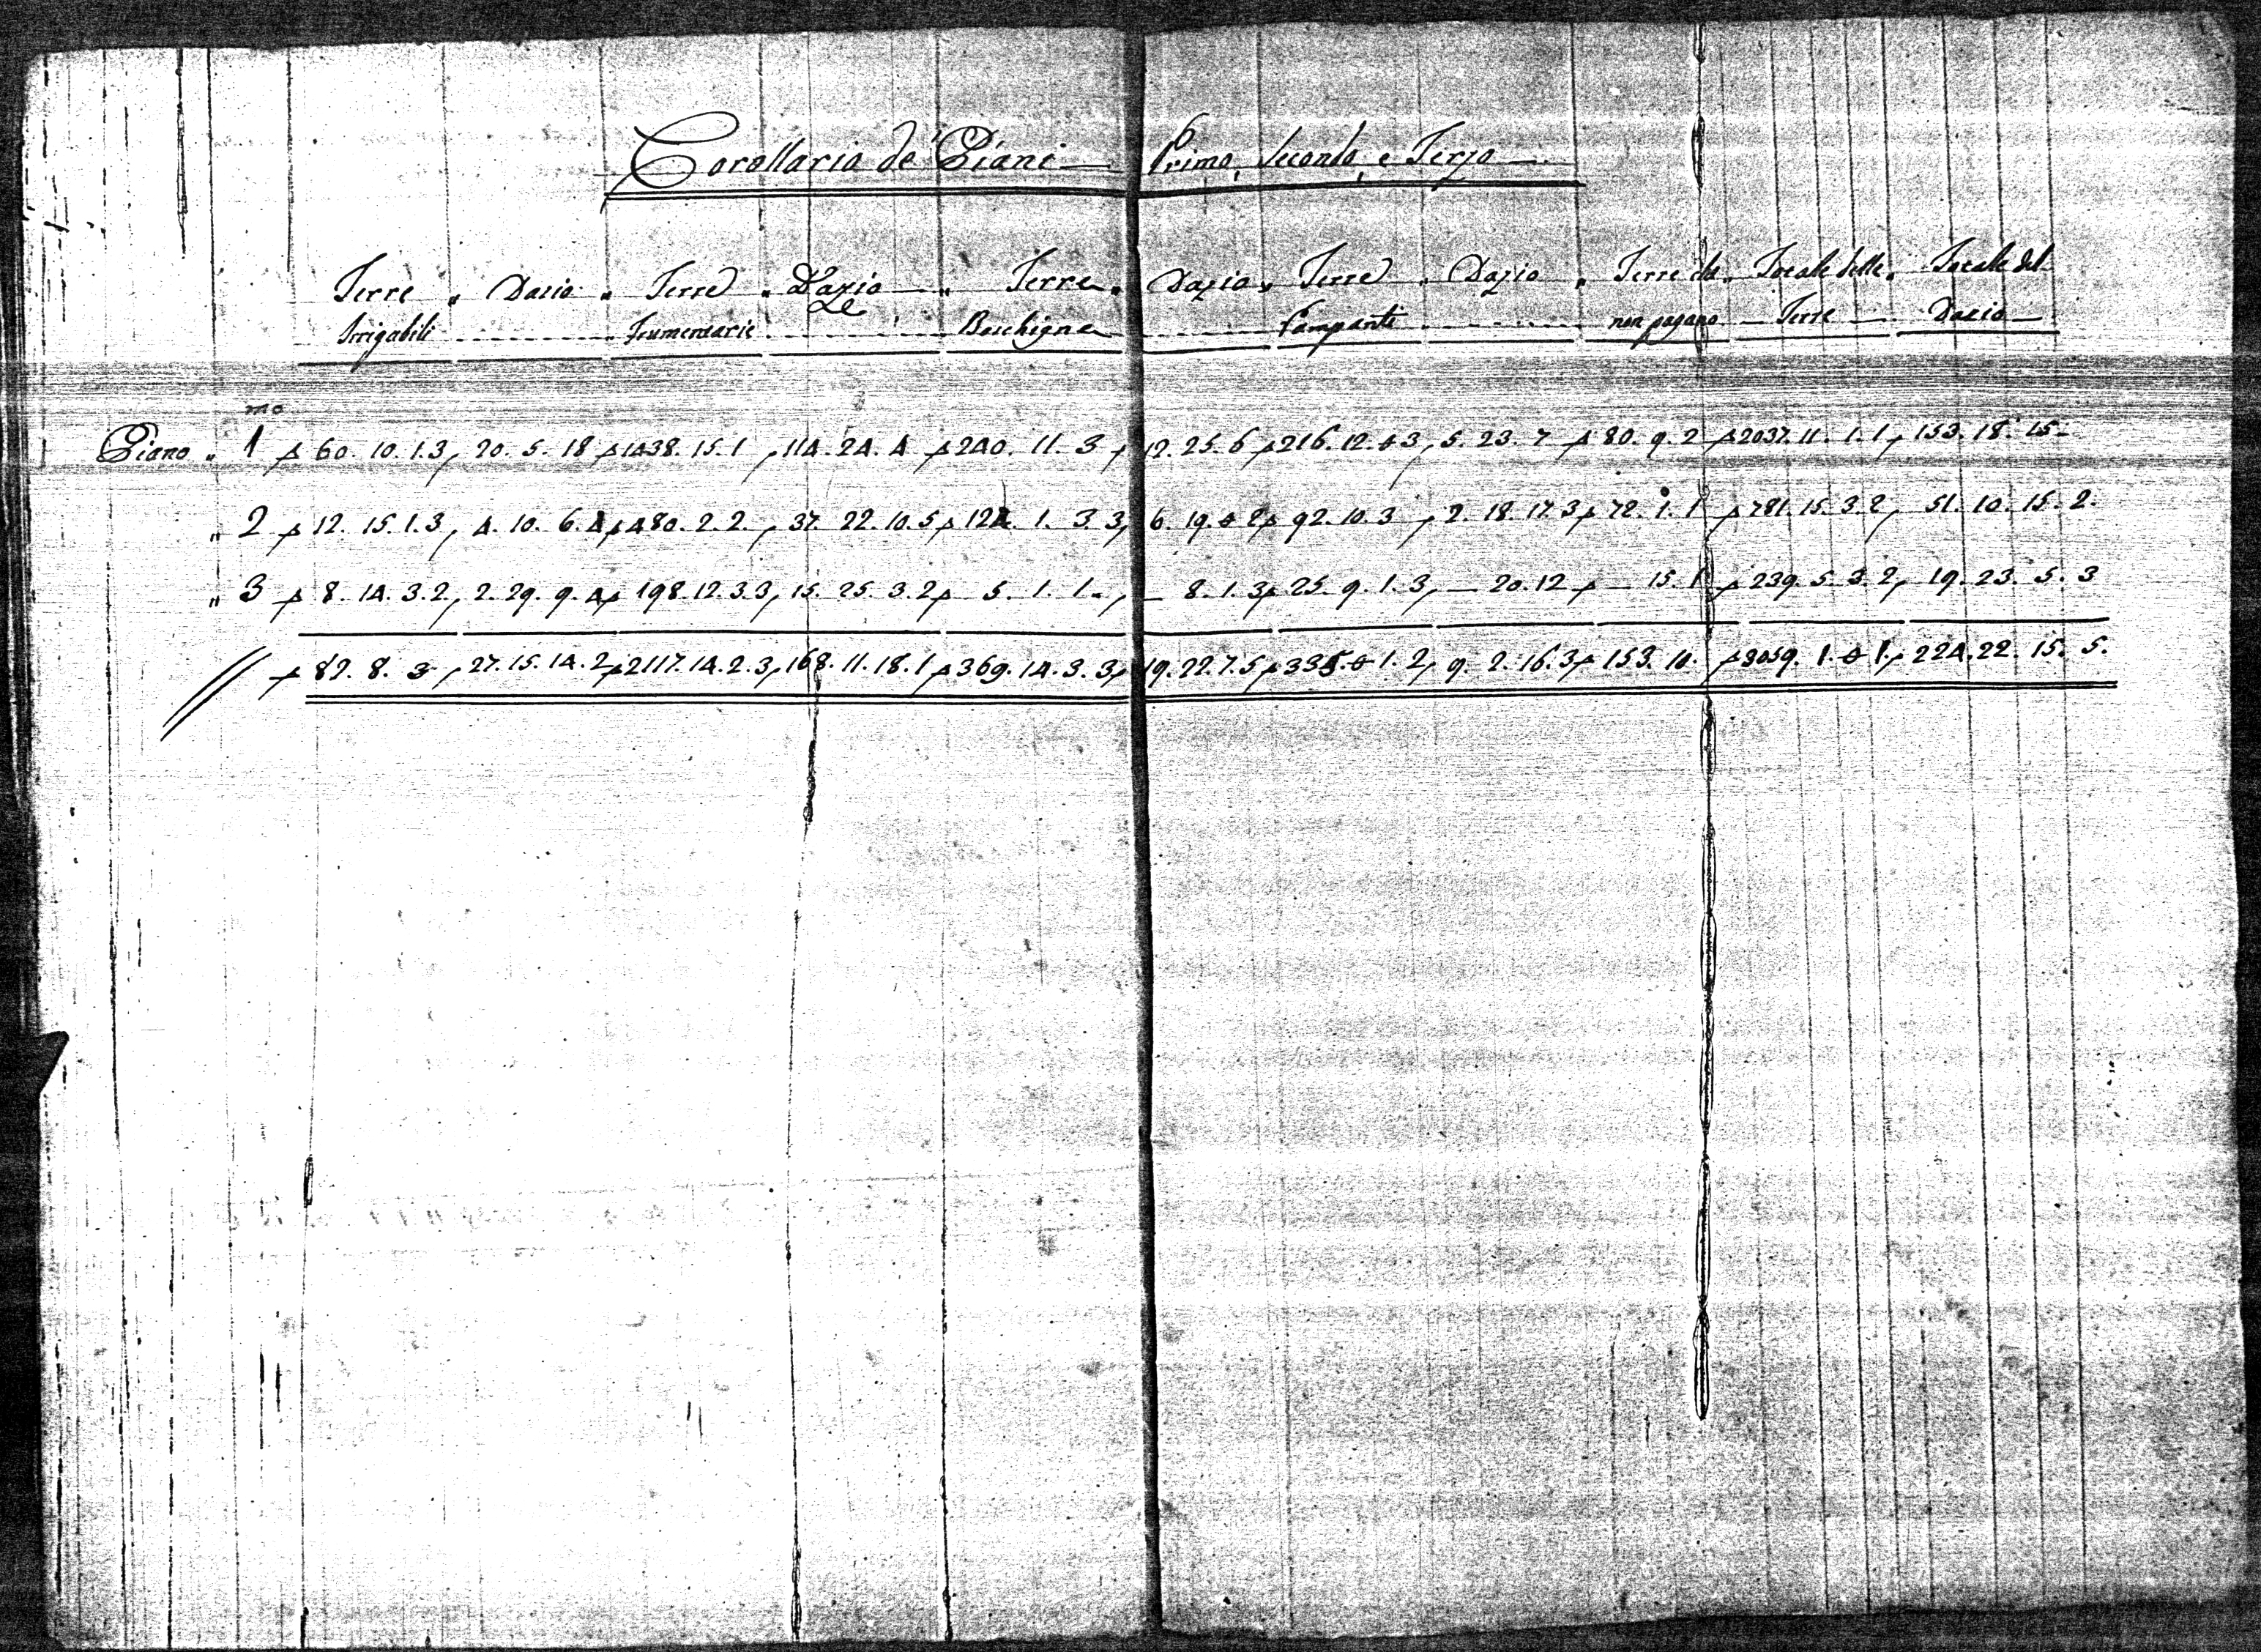 Corollario de' Piani — Primo, Secondo, e Terzo —
Terre " Dazio " Terre " Dazio — " Terre " Dazio " Terre " Dazio " Terre che " Totale delle " Totale del
Irrigabili Frumentarie Boschigne Campanti non pagano — Terre — Dazio —
mo
Piano " 1 60. 10. 1.3, 20. 5. 18 1438. 15. 1 , 114. 24. 4 240. 11. 3 , 12. 25. 6 216. 12. 0 3, 5. 23. 7 80. 9. 2 2037. 11. 1. 1, 153. 18. 15-
" 2 12. 15. 1.3, 4. 10. 6. 4, 480. 2. 2. , 37. 22. 10. 5, 124. 1. 3 3, 6. 19. 0 2, 92. 10. 3 , 2. 18. 17. 3, 72. 1. 1 781. 15. 3. 2, 51. 10. 15. 2.
" 3 8. 14. 3. 2, 2. 29. 9. 4, 198. 12. 3. 3, 15. 25. 3. 2, 5. 1. 1. , — 8. 1. 3, 25. 9. 1. 3, — 20. 12 — 15. 1 239. 5. 3. 2, 19. 23. 5. 3
82. 8. 3 , 27. 15. 14. 2, 2117. 14. 2. 3, 168. 11. 18. 1, 369. 14. 3. 3, 19. 22. 7. 5, 335. 0 1. 2, 9. 2. 16. 3, 153. 10. 3059. 1. 0 1, 224. 22. 15. 5.